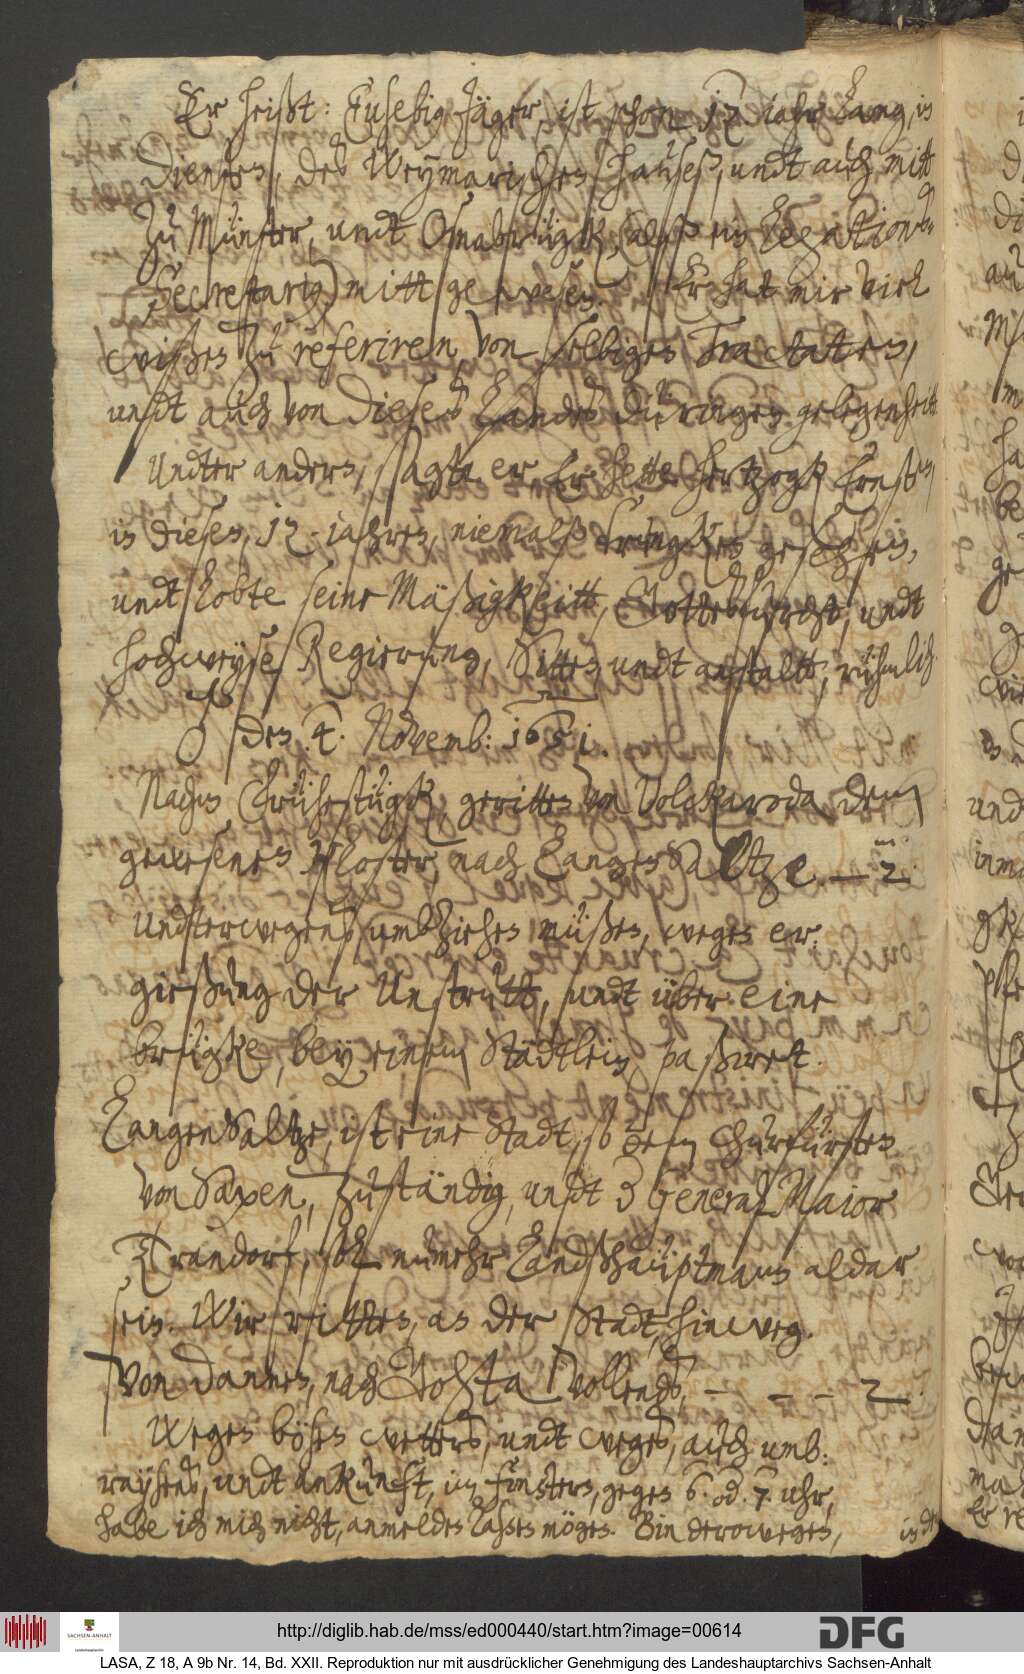 Er heißt: Eusebig Jäger, ist schon 17 iahr lang, in
diensten, des Weymarischen hauses, undt auch mitt
zu Münster, undt Osnabrügk, (alß ein Legations-
Secretarig) mitt gewesen. Er hat mir viel
wißen zu referiren, von selbigen Tractaten,
undt auch von dieses Landes Düringen gelegenheitt
Undter andern, sagte er, Er hette Hertzogk Ernsten,
in diesen, 17 iahren, niemalß trungken gesehen,
undt lobte seine Mäßigkeitt, Gottesfurcht, undt
hochweyse Regierung, Sitten undt anstaltt, rühmlich.
den 4. Novemb: 1651.
Nachm Frühestügk, geritten von Volckaroda dem
gewesenen Kloster, nach Langen Saltze — 2
Undterwegens umbziehen müßen, wegen er-
gießung der Unstrutt, undt über eine
brügke, bey einem Städtlein, paßiret.
LangenSaltze, ist eine Stadt, so dem Churfürsten
von Saxen, zuständig, undt General Maior
Trandorf, soll numehr Landshauptmann aldar
sein. Wir ritten, an der Stadt, hinweg.
Von dannen, nach Gohta vollends, — — — 2
Wegen bösen wetters, undt weges, auch umb-
raysens, undt ankunft, im finstern, gegen 6. od. 7. uhr,
habe ich mich nicht, anmelden laßen mögen. Bin derowegen,
in der
http://diglib.hab.de/mss/ed000440/start.htm?image=00614
DFG
SACHSEN-ANHALT
Landeshauptarchiv
LASA, Z 18, A 9b Nr. 14, Bd. XXII. Reproduktion nur mit ausdrücklicher Genehmigung des Landeshauptarchivs Sachsen-Anhalt